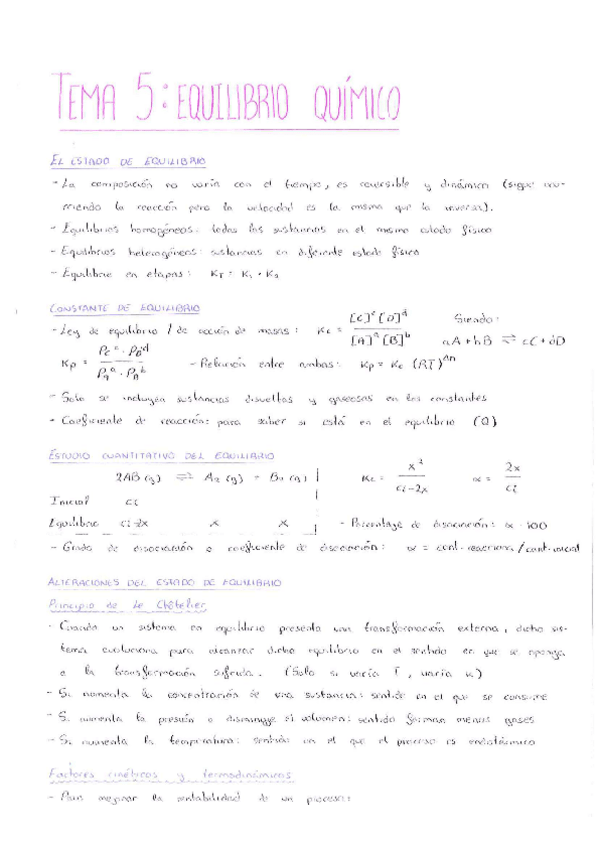 TEMA 5: EQUILIBRIO QUÍMICO
EL ESTADO DE EQUILIBRIO
- La composición no varía con el tiempo, es reversible y dinámica (sigue ocu-
rriendo la reacción pero la velocidad es la misma que la inversa).
- Equilibrios homogéneos: todas las sustancias en el mismo estado físico
- Equilibrios heterogéneos: sustancias en diferente estado físico
- Equilibrio en etapas: KT = K1 · K2
CONSTANTE DE EQUILIBRIO
- Ley de equilibrio / de acción de masas: Kc = [C]^c [D]^d / [A]^a [B]^b Siendo:
aA + bB ⇌ cC + dD
Kp = Pc^c · PD^d / PA^a · PB^b - Relación entre ambas: Kp = Kc (RT)^Δn
- Solo se incluyen sustancias disueltas y gaseosas en las constantes
- Coeficiente de reacción: para saber si está en el equilibrio (Q)
ESTUDIO CUANTITATIVO DEL EQUILIBRIO
2AB (g) ⇌ A2 (g) + B2 (g) Kc = x^2 / ci-2x α = 2x / ci
Inicial ci
Equilibrio ci-2x x x - Porcentaje de disociación: α · 100
- Grado de disociación o coeficiente de disociación: α = cant. reacciona / cant. inicial
ALTERACIONES DEL ESTADO DE EQUILIBRIO
Principio de Le Châtelier
· Cuando un sistema en equilibrio presenta una transformación externa, dicho sis-
tema evoluciona para alcanzar dicho equilibrio en el sentido en que se oponga
a la transformación sufrida. (Solo si varía T, varía K)
- Si aumenta la concentración de una sustancia: sentido en el que se consume
- Si aumenta la presión o disminuye el volumen: sentido forman menos gases
- Si aumenta la temperatura: sentido en el que el proceso es endotérmico
Factores cinéticos y termodinámicos
- Para mejorar la rentabilidad de un proceso: